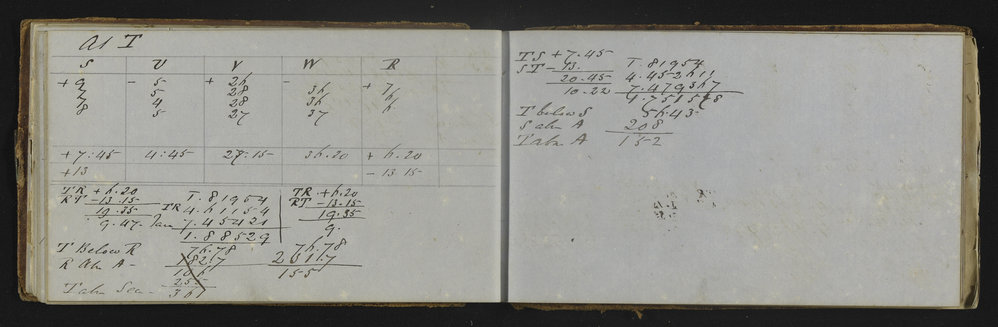 At T
S U V W R
+ 9 - 5 + 26 - + 7
7 5 28 36 6
7 4 28 36 6
8 5 27 37
+ 7:45 4:45 27.15 36.20 + 6.20
+13 - 13 15
TR + 6.20 TR + 6.20
RT - 13.15 T. 81954 RT - 13.15
19.35 TR 4.61154 19.35
9.47 Tan 7.45421 9.
1.88529
T Below R 76.78 76.78
R Abv A - 18217
106 155
255
T abv Sea - 361
TS + 7.45
ST - 13. T. 81954
20.45 4.45261
10.22 7.47936
1.75158
T below S 56.43
S abv A 208
T abv A 152